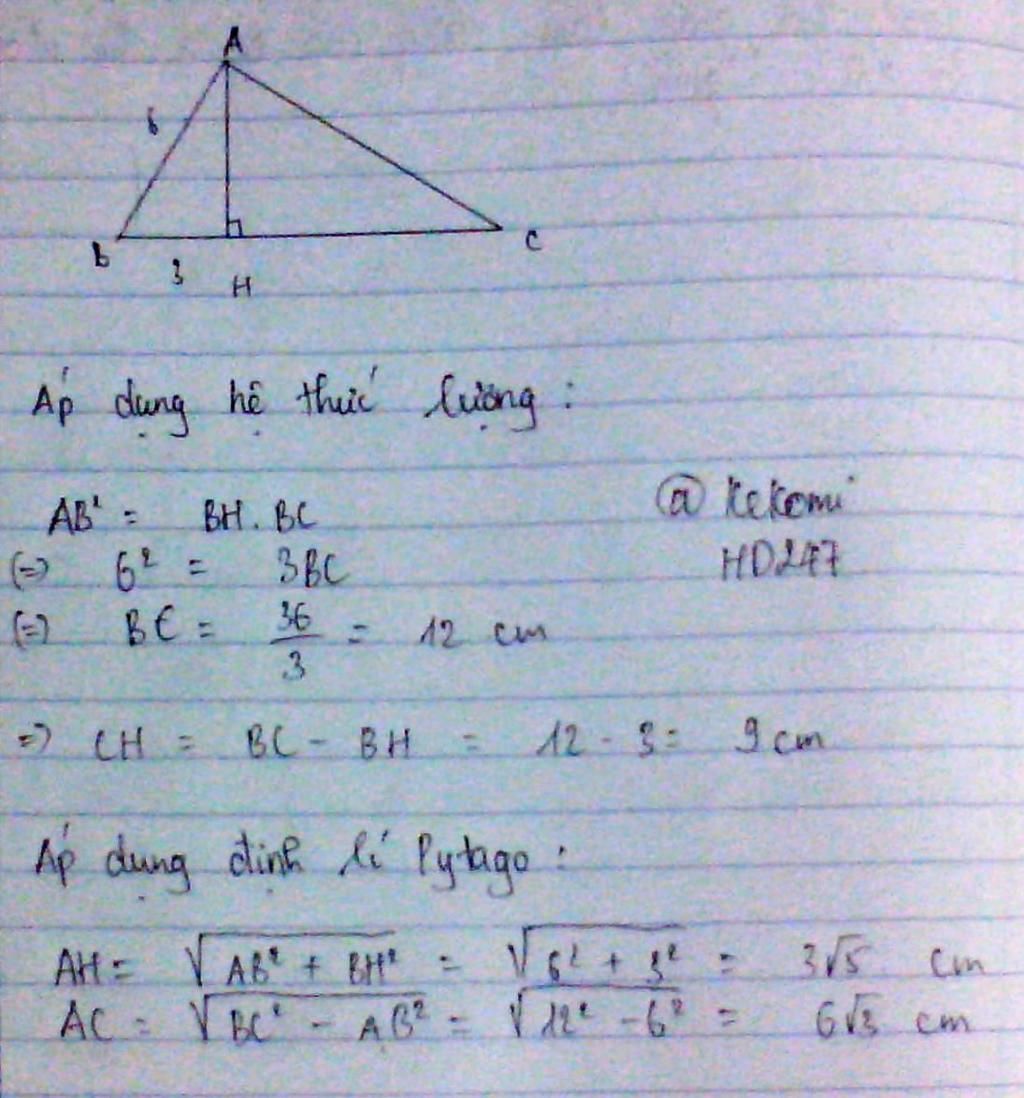 A
6
B
3
H
C
Áp dụng hệ thức lượng :
AB² = BH . BC
(=) 6² = 3BC
(=) BC = 36/3 = 12 cm
@ KeKomi
HD247
=) CH = BC - BH = 12 - 3 = 9 cm
Áp dụng định lí Pytago :
AH = √AB² + BH² = √6² + 3² = 3√5 cm
AC = √BC² - AB² = √12² - 6² = 6√3 cm